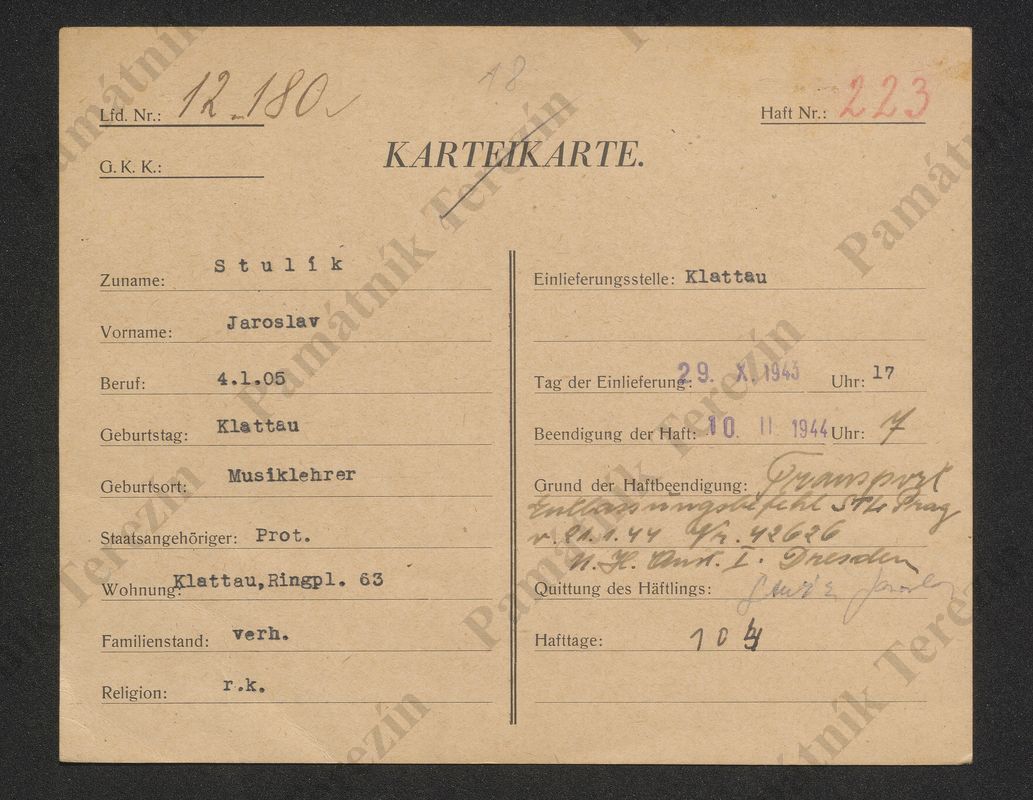 18
Lfd. Nr.: 12.180
Haft Nr.: 223
G. K. K.:
KARTEIKARTE.
Zuname: Stulík
Vorname: Jaroslav
Beruf: 4.1.05
Geburtstag: Klattau
Geburtsort: Musiklehrer
Staatsangehöriger: Prot.
Wohnung: Klattau,Ringpl. 63
Familienstand: verh.
Religion: r.k.
Einlieferungsstelle: Klattau
Tag der Einlieferung: 29. X. 1943 Uhr: 17
Beendigung der Haft: 10. II 1944 Uhr: 7
Grund der Haftbeendigung: Transport
Entlassungsbefehl STL Prag
v. 21.1.44 Nr. 42626
U. H. Anst. I. Dresden
Quittung des Häftlings:
Hafttage: 104
Památník Terezín
Památník Terezín
Památník Terezín
Památník Terezín